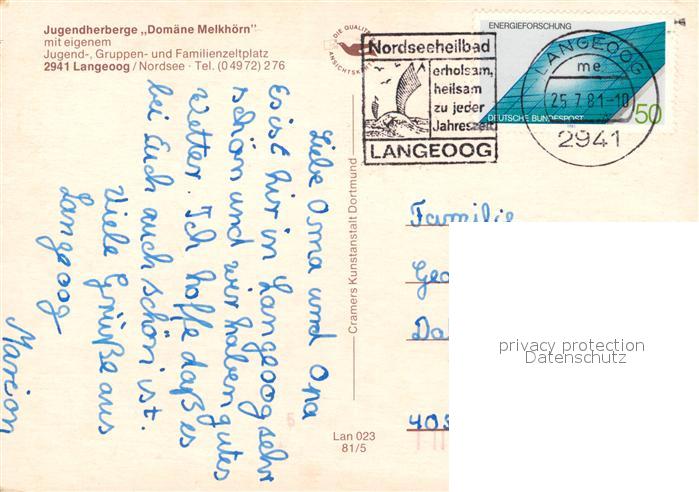 Jugendherberge „Domäne Melkhörn"
mit eigenem
Jugend-, Gruppen- und Familienzeltplatz
2941 Langeoog / Nordsee · Tel. (0 49 72) 2 76
DIE QUALITÄTS
ANSICHTSKARTE
Nordseeheilbad
erholsam,
heilsam
zu jeder
Jahreszeit
LANGEOOG
ENERGIEFORSCHUNG
DEUTSCHE BUNDESPOST
50
LANGEOOG
me
25.7.81-10
2941
Liebe Oma und Opa
Es ist hir in Langeoog sehr
schön und wir haben gutes
Wetter. Ich hoffe daß es
bei Euch auch schön ist.
Viele Grüße aus
Langeoog
Marion
Cramers Kunstanstalt Dortmund
Lan 023
81/5
Familie
privacy protection
Datenschutz